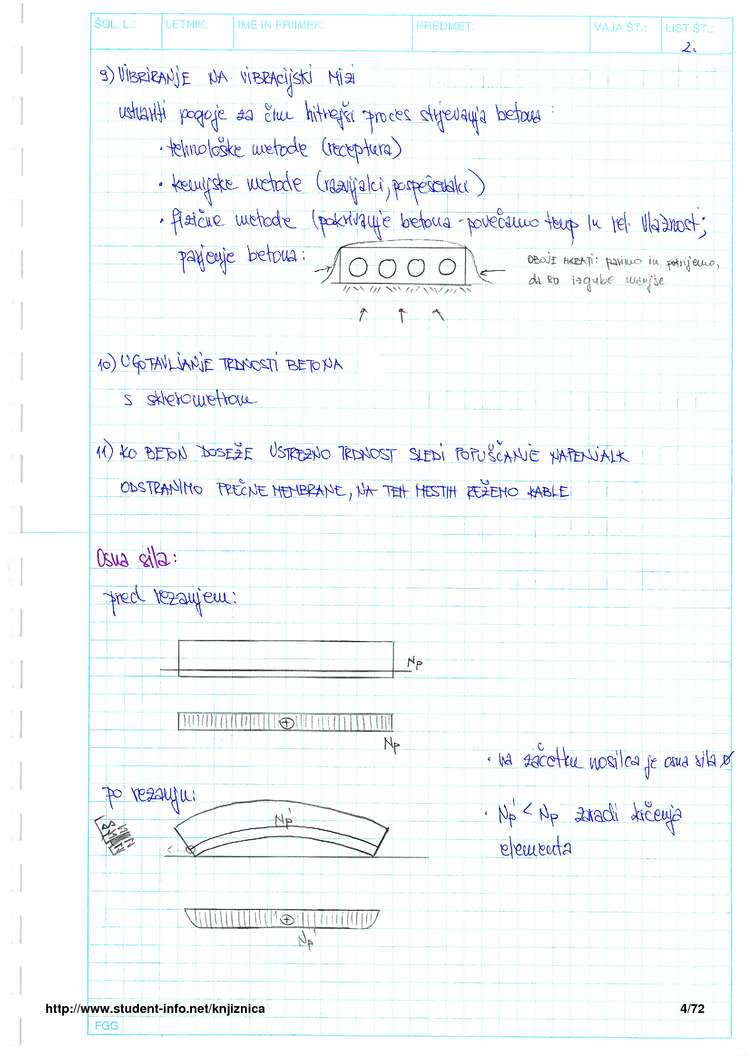 ŠOL. L.: LETNIK: IME IN PRIIMEK: PREDMET: VAJA ŠT.: LIST ŠT.:
2.
9) VIBRIRANJE NA VIBRACIJSKI MIZI
ustvariti pogoje za čim hitrejši proces strjevanja betona :
· tehnološke metode (receptura)
· kemijske metode (razvijalci, pospeševalci)
· fizične metode (pokrivanje betona - povečamo temp in rel. vlažnost;
parjenje betona:
OBOJE HKRATI: parimo in pokrijemo,
da so izgube manjše
10) UGOTAVLJANJE TRDNOSTI BETONA
s sklerometrom
11) KO BETON DOSEŽE USTREZNO TRDNOST SLEDI POPUŠČANJE NAPENJALK
ODSTRANIMO PREČNE MEMBRANE, NA TEH MESTIH REŽEMO KABLE
Osna sila:
pred rezanjem:
Np
Np
· na začetku nosilca je osna sila ∅
po rezanju:
Np'
· Np' < Np zaradi krčenja
elementa
Np'
http://www.student-info.net/knjiznica
4/72
FGG